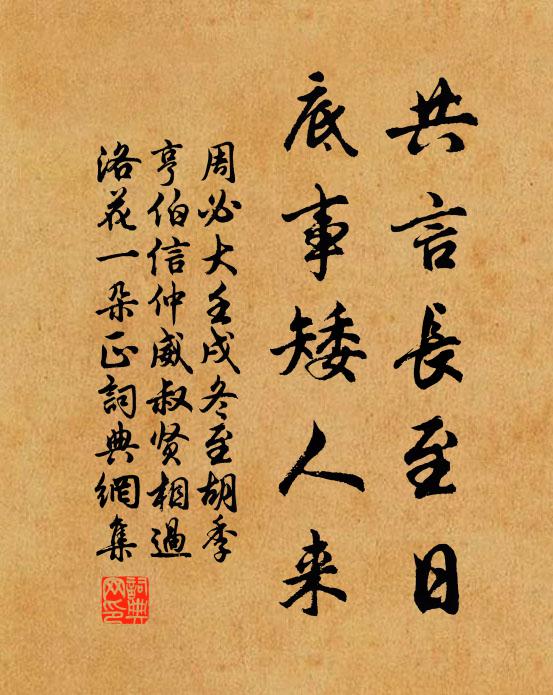 共言長至日
底事矮人来
周必大壬戌冬至胡季
亨伯信仲威叔贤相過
洛花一朵正詞典網集
詞典网印